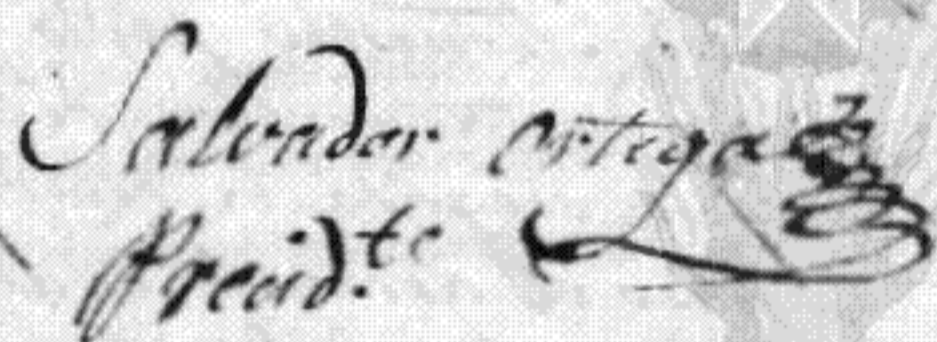 Salvador ortega
Presid.te